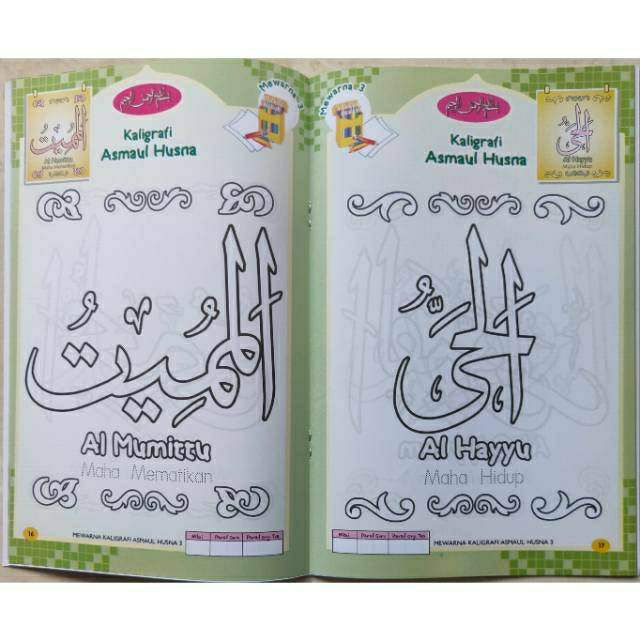 المميت
Al Mumittu
Maha Mematikan
بسم الله الرحمن الرحيم
Mewarna 3
Kaligrafi
Asmaul Husna
المميت
Al Mumittu
Maha Mematikan
16
MEWARNA KALIGRAFI ASMAUL HUSNA 3
Nilai
Paraf Guru
Paraf org. Tua
Mewarna 3
بسم الله الرحمن الرحيم
Kaligrafi
Asmaul Husna
الحي
Al Hayyu
Maha Hidup
الحَيُّ
Al Hayyu
Maha Hidup
Nilai
Paraf Guru
Paraf org. Tua
MEWARNA KALIGRAFI ASMAUL HUSNA 3
17